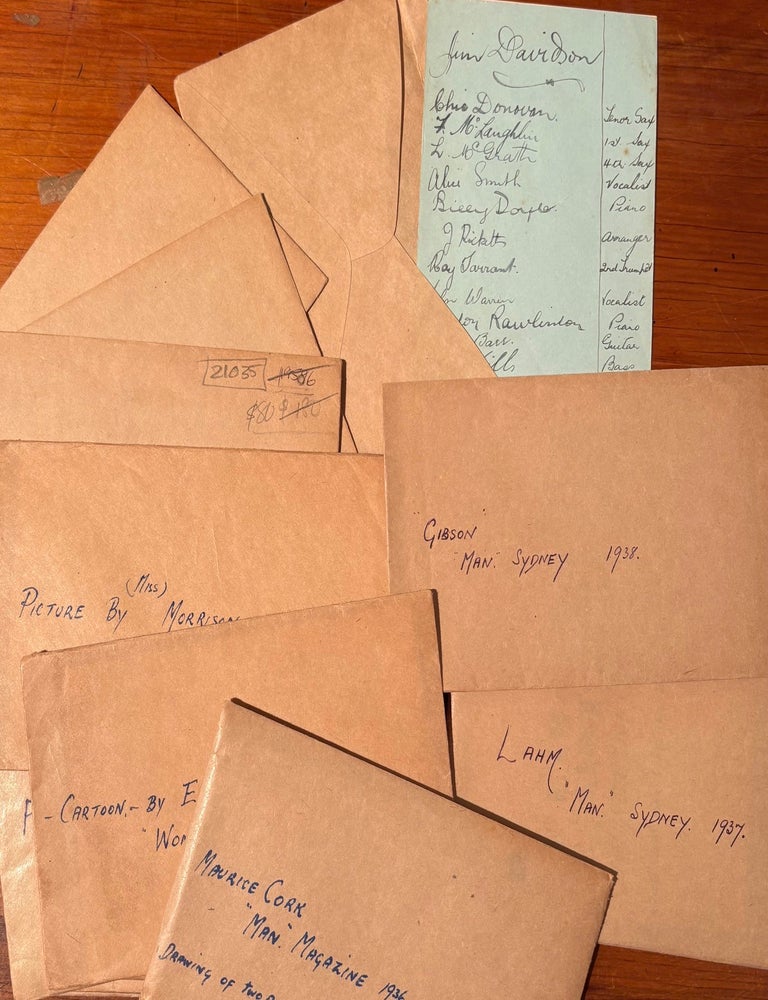 Jim Davidson
Chic Donovan. Tenor Sax
F. McLaughlin 1st Sax
L McGrath 4th Sax
Alice Smith Vocalist
Billy Piano
J Ricketts Arranger
Ray Tarrant. 2nd Trumpet
Warren Vocalist
Rawlinson Piano
Barr. Guitar
Bass
21035 19586
$80 $180
"GIBSON"
"MAN." SYDNEY 1938.
(MISS)
PICTURE BY MORRISON
LAHM.
"MAN." SYDNEY. 1937.
- CARTOON. - BY E
"WOM
MAURICE CORK
"MAN." MAGAZINE 1936
DRAWING OF TWO